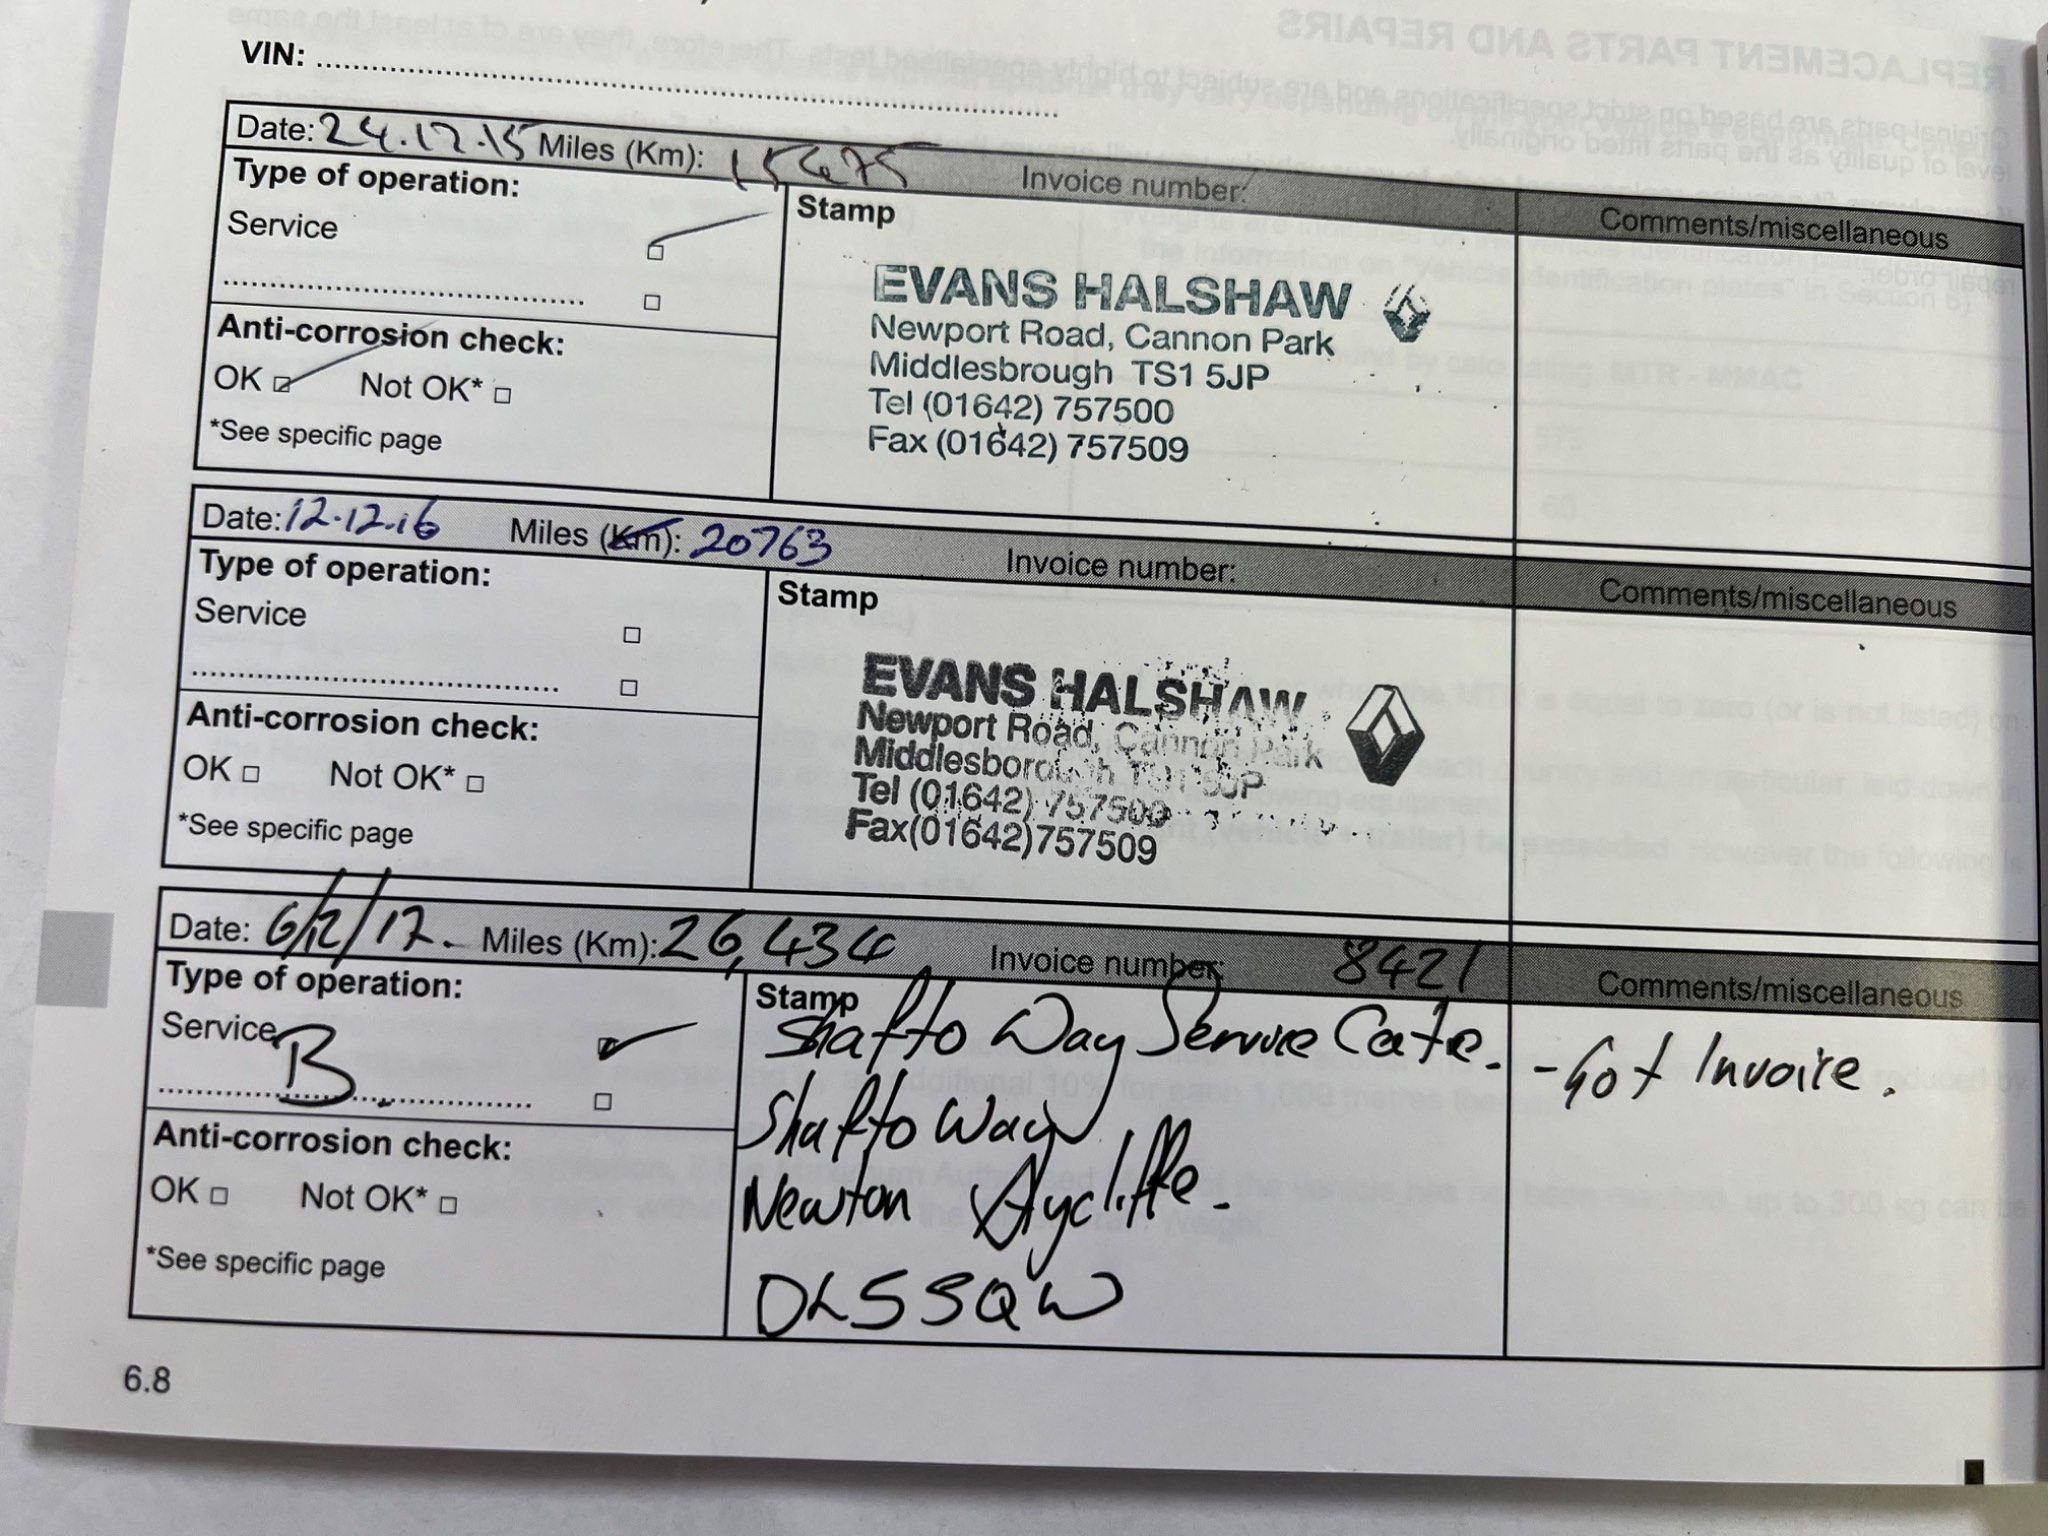 VIN:
Date: 24.12.15 Miles (Km): 15475 Invoice number: Comments/miscellaneous
Type of operation:
Service
Stamp
EVANS HALSHAW
Newport Road, Cannon Park
Middlesbrough TS1 5JP
Tel (01642) 757500
Fax (01642) 757509
Anti-corrosion check:
OK Not OK*
*See specific page
Date: 12.12.16 Miles (Km): 20763 Invoice number: Comments/miscellaneous
Type of operation:
Service
Stamp
EVANS HALSHAW
Newport Road, Cannon Park
Middlesborough TS1 5JP
Tel (01642) 757500
Fax(01642)757509
Anti-corrosion check:
OK Not OK*
*See specific page
Date: 6/12/17. Miles (Km): 26,434 Invoice number: 8421 Comments/miscellaneous
Type of operation:
Service B.
Stamp
Shafto Way Service
Shafto Way
Newton Aycliffe.
DL5 5QW
- Got Invoice.
Anti-corrosion check:
OK Not OK*
*See specific page
6.8